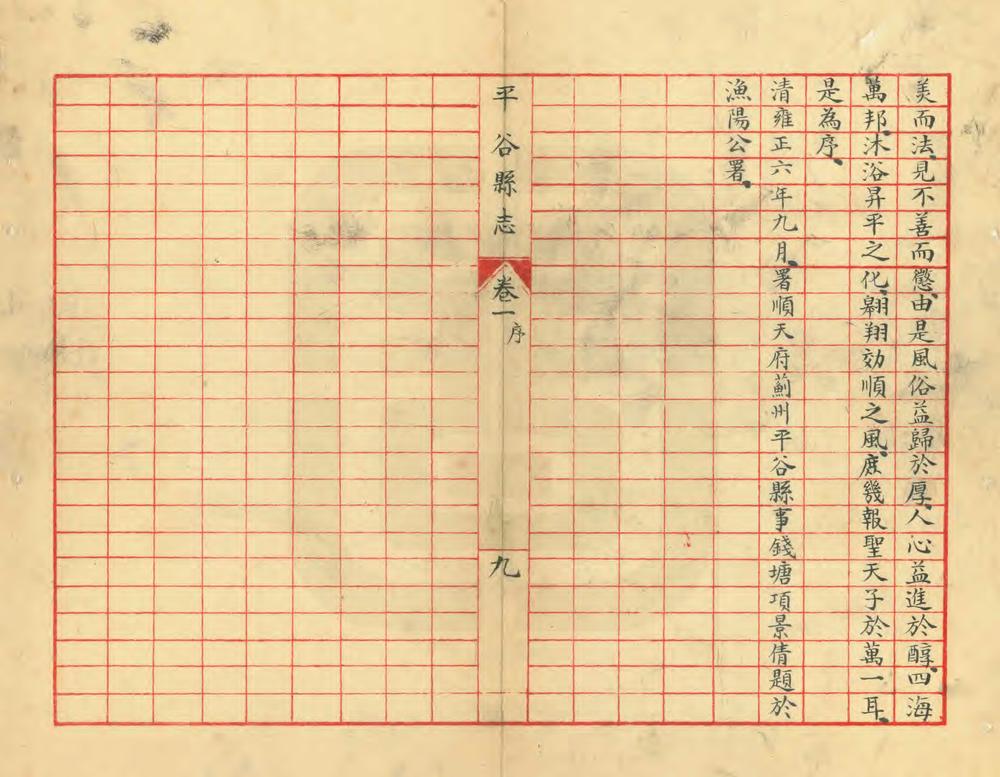 美而法、見不善而懲、由是風俗益歸於厚、人心益進於醇、四海
萬邦、沐浴昇平之化、翱翔効順之風、庶幾報聖天子於萬一耳、
是為序、
清雍正六年九月、署順天府薊州平谷縣事錢塘項景倩題於
漁陽公署、
平谷縣志
卷一
序
九